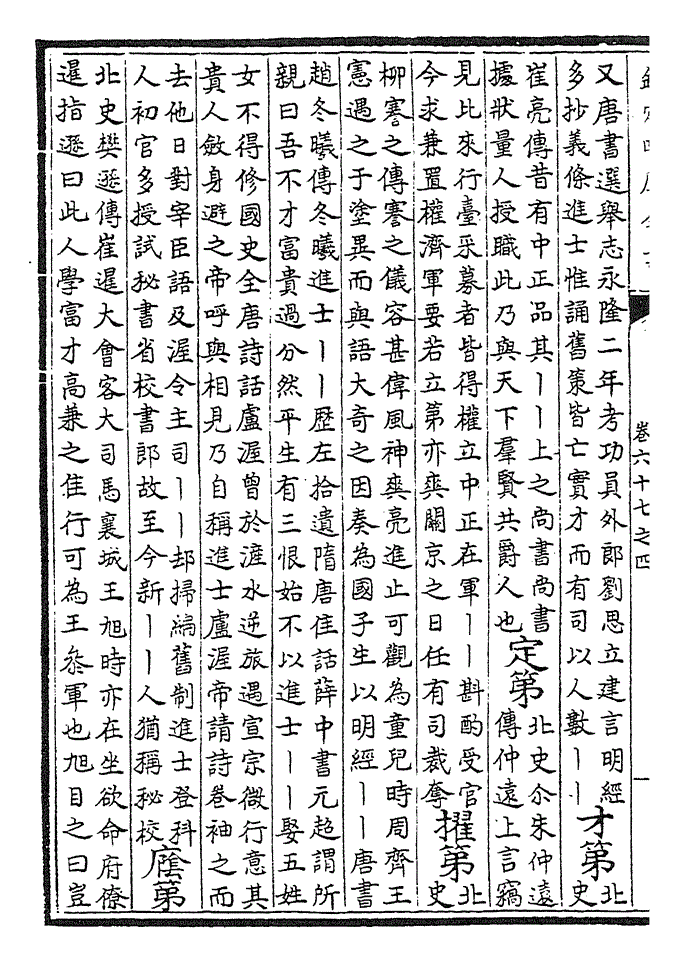 欽定四庫全書
卷六十七之四
一
又唐書選舉志永隆二年考功員外郎劉思立建言明經
多抄義條進士惟誦舊策皆亡實才而有司以人數丨丨
才第
北
史
崔亮傳昔有中正品其丨丨上之尚書尚書
據狀量人授職此乃與天下羣賢共爵人也
定第
北史尒朱仲遠
傳仲遠上言竊
見比來行臺采募者皆得權立中正在軍丨丨斟酌受官
今求兼置權濟軍要若立第亦爽關京之日任有司裁奪
擢第
北
史
柳謇之傳謇之儀容甚偉風神爽亮進止可觀為童兒時周齊王
憲遇之于塗異而與語大奇之因奏為國子生以明經丨丨唐書
趙冬曦傳冬曦進士丨丨歴左拾遺隋唐佳話薛中書元超謂所
親曰吾不才富貴過分然平生有三恨始不以進士丨丨娶五姓
女不得修國史全唐詩話盧渥曾於滻水逆旅遇宣宗微行意其
貴人斂身避之帝呼與相見乃自稱進士盧渥帝請詩卷袖之而
去他日對宰臣語及渥令主司丨丨却掃編舊制進士登科
人初官多授試秘書省校書郎故至今新丨丨人猶稱秘校
廕第
北史樊遜傳崔暹大會客大司馬襄城王旭時亦在坐欲命府僚
暹指遜曰此人學富才高兼之佳行可為王叅軍也旭目之曰豈